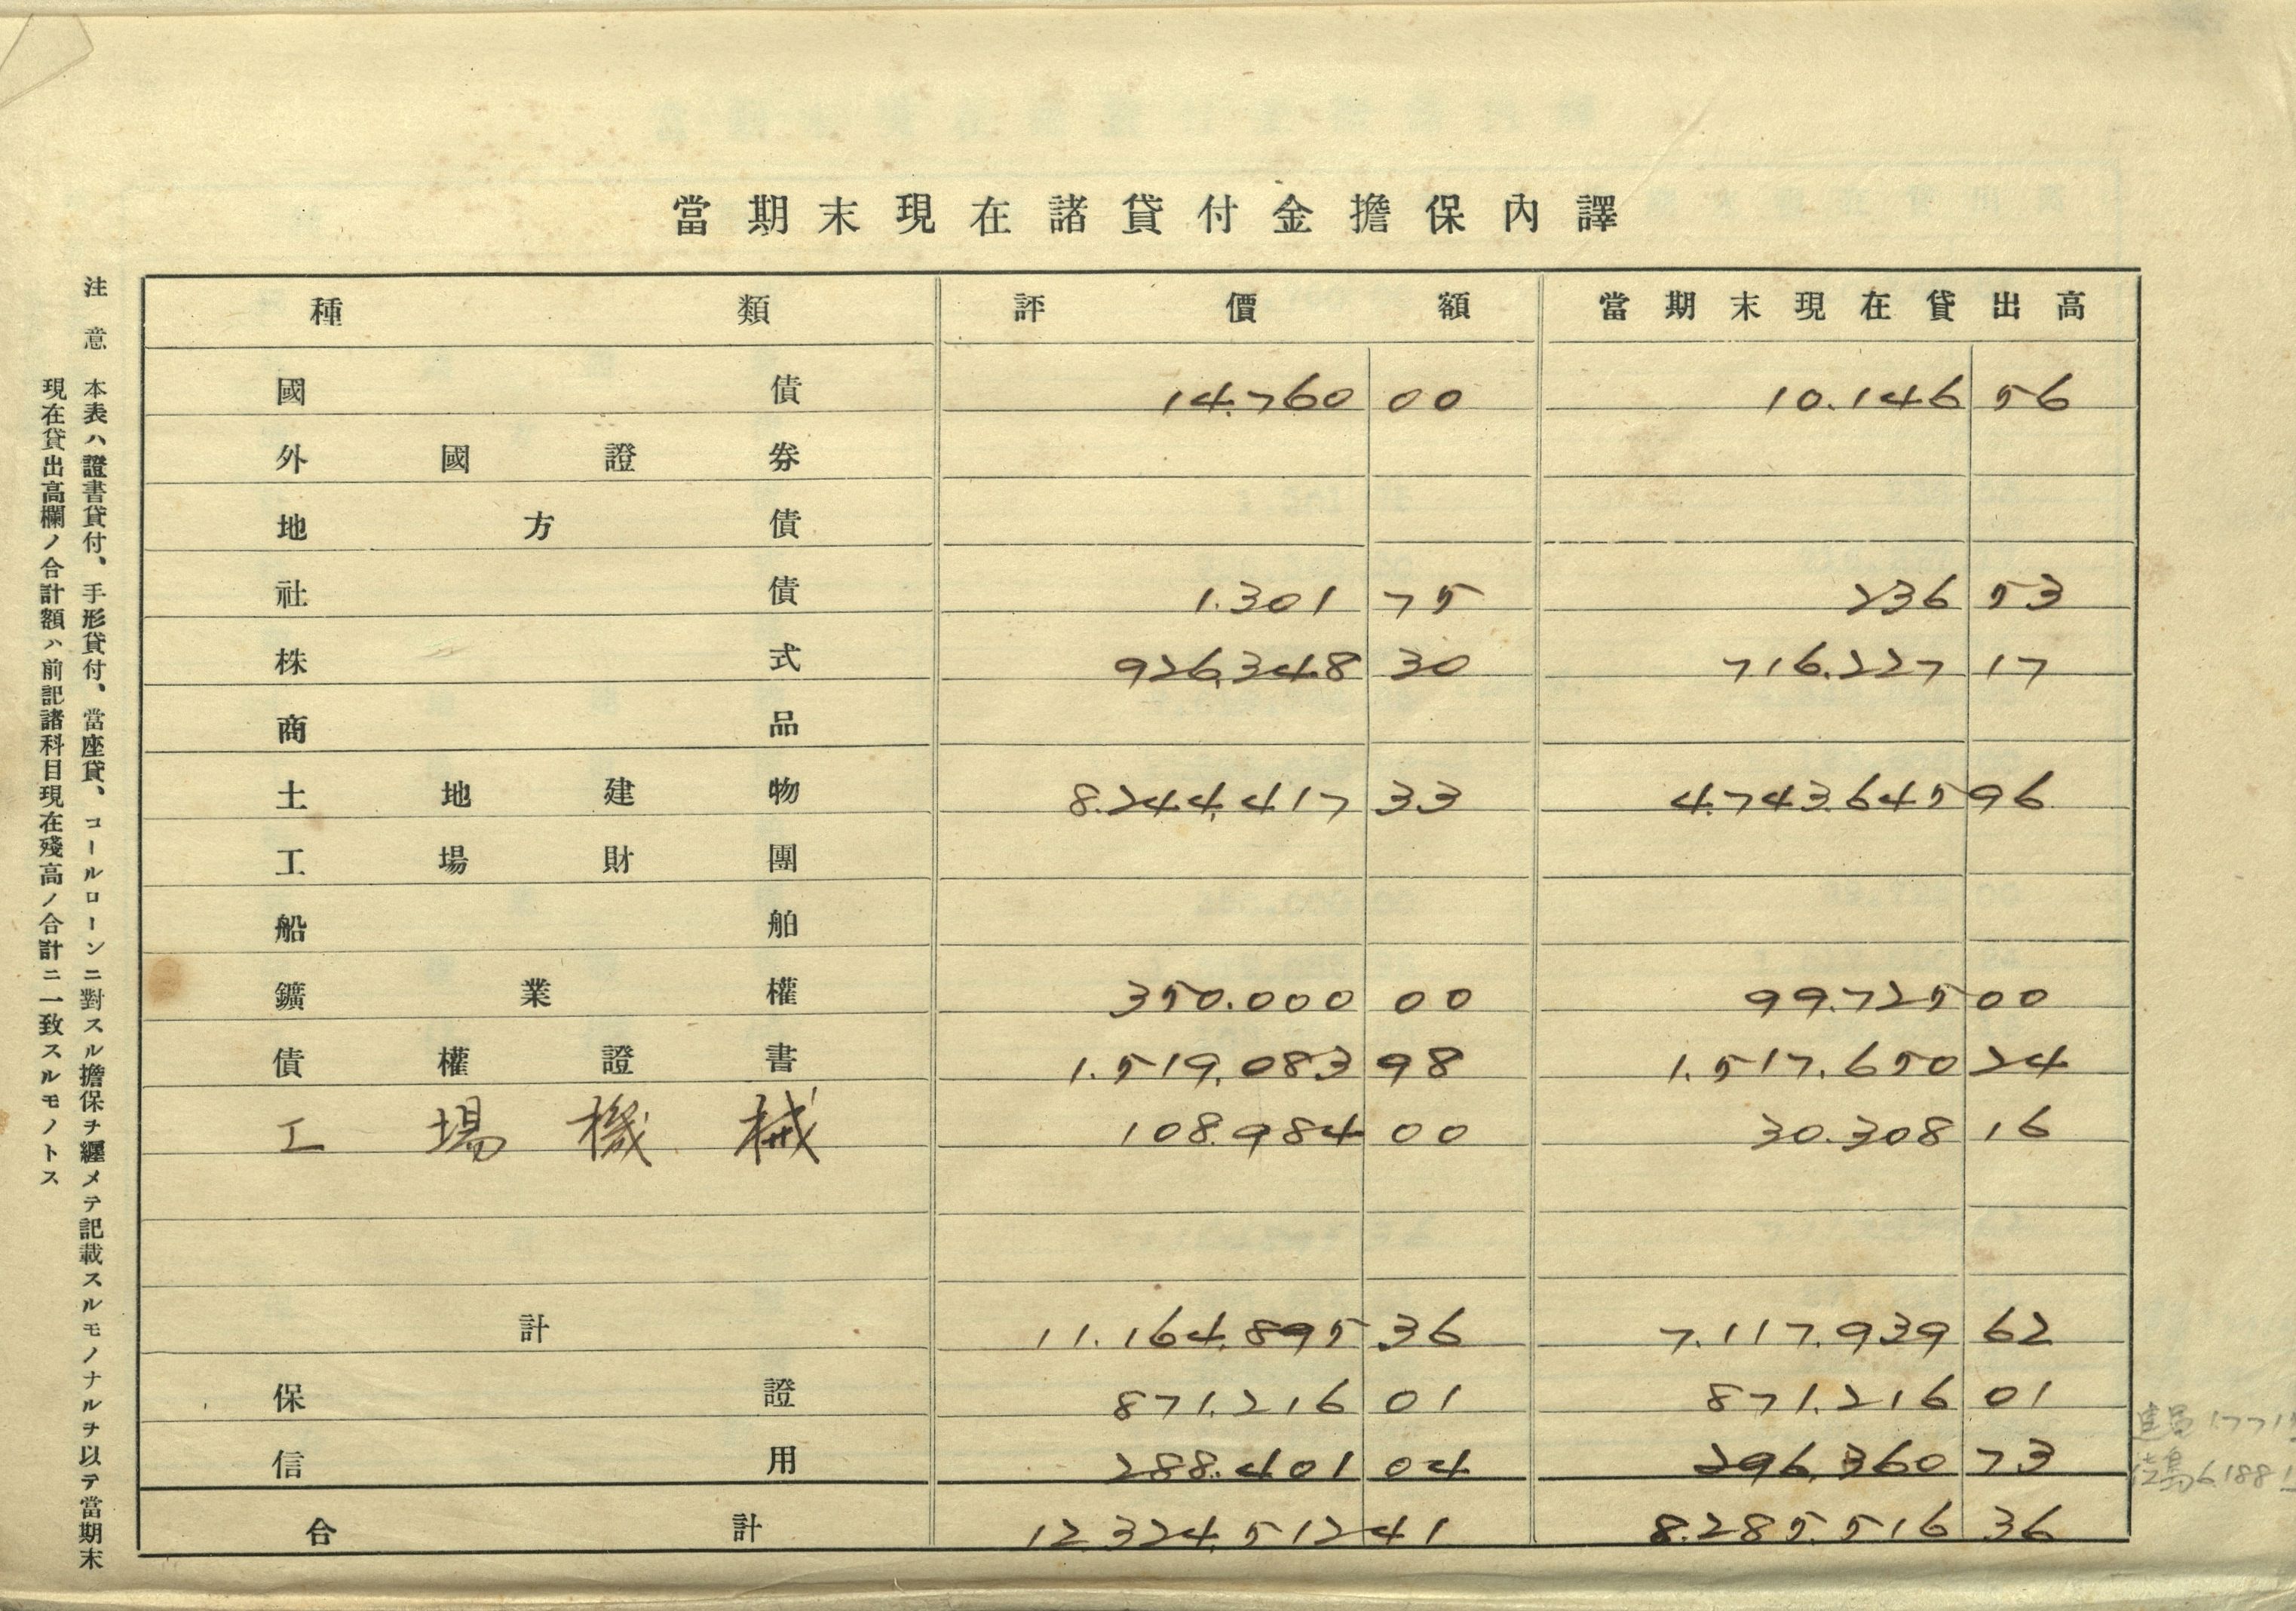 當期末現在諸貸付金擔保內譯
種類 評價額 當期末現在貸出高
國債 14.760 00 10.146 56
外國證券
地方債
社債 1.301 75 236 53
株式 926.348 30 716.227 17
商品
土地建物 8.244.417 33 4.743.645 96
工場財團
船舶
鑛業權 350.000 00 99.725 00
債權證書 1.519.083 98 1.517.650 24
工場機械 108.984 00 30.308 16
計 11.164.895 36 7.117.939 62
保證 871.216 01 871.216 01
信用 288.401 04 296.360 73
合計 12.324.512 41 8.285.516 36
注意 本表ハ證書貸付、手形貸付、當座貸、コールローンニ對スル擔保ヲ纒メテ記載スルモノナルヲ以テ當期末
現在貸出高欄ノ合計額ハ前記諸科目現在殘高ノ合計ニ一致スルモノトス